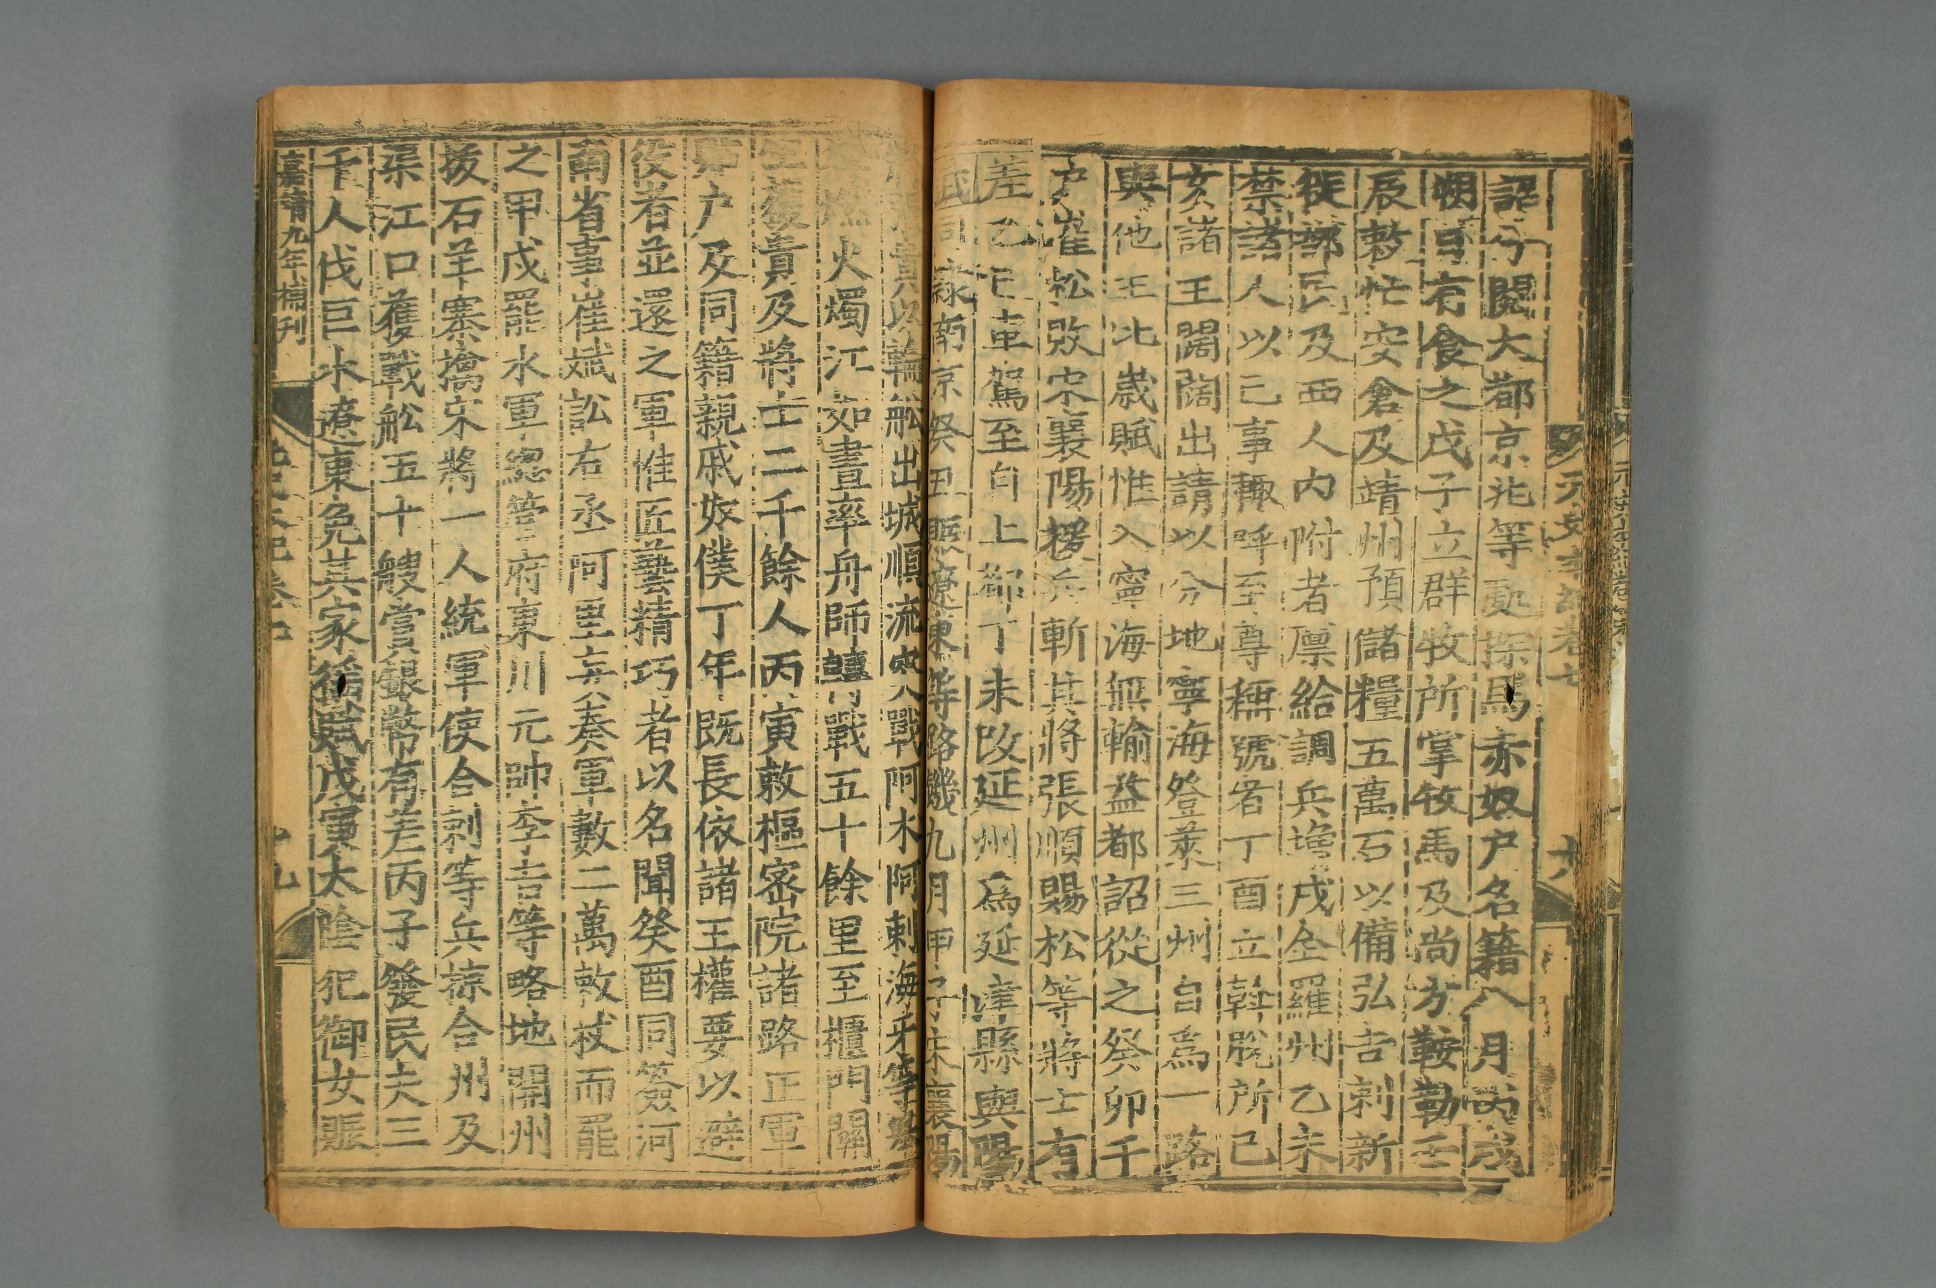 元史本紀卷七
六
詔分閱大都京兆等處探馬赤奴户名籍八月丙戌
朔日有食之戊子立群牧所掌牧馬及尚方鞍勒壬
辰敕忙安倉及靖州預儲糧五萬石以備弘吉剌新
徙部民及西人内附者廪給調兵增戍全羅州乙未
禁諸人以己事輒呼至尊稱號者丁酉立斡脫所己
亥諸王闊闊出請以分地寧海登萊三州自爲一路
與他王比歲賦惟入寧海無輸益都詔從之癸卯千
户崔松敗宋襄陽援兵斬其將張順賜松等將士有
差乙巳車駕至自上都丁未改延州爲延津縣與陽
武同隸南京癸丑賑遼東等路饑九月甲子宋襄陽
貴以輪船出城順流突戰阿朮阿剌海牙等舉
燃火燭江如晝率舟師轉戰五十餘里至櫃門關
生獲貴及將士二千餘人丙寅敕樞密院諸路正軍
貼户及同籍親戚奴僕丁年既長依諸王權要以避
役者並還之軍惟匠藝精巧者以名聞癸酉同簽河
南省事崔斌訟右丞阿里妄奏軍數二萬敕杖而罷
之甲戌罷水軍總管府東川元帥李吉等略地開州
拔石羊寨擒宋將一人統軍使合剌等兵掠合州及
渠江口獲戰船五十艘賞銀幣有差丙子發民夫三
千人伐巨木遼東免其家徭賦戊寅太陰犯御女賑
嘉靖九年補刊
元史本紀卷七
十九